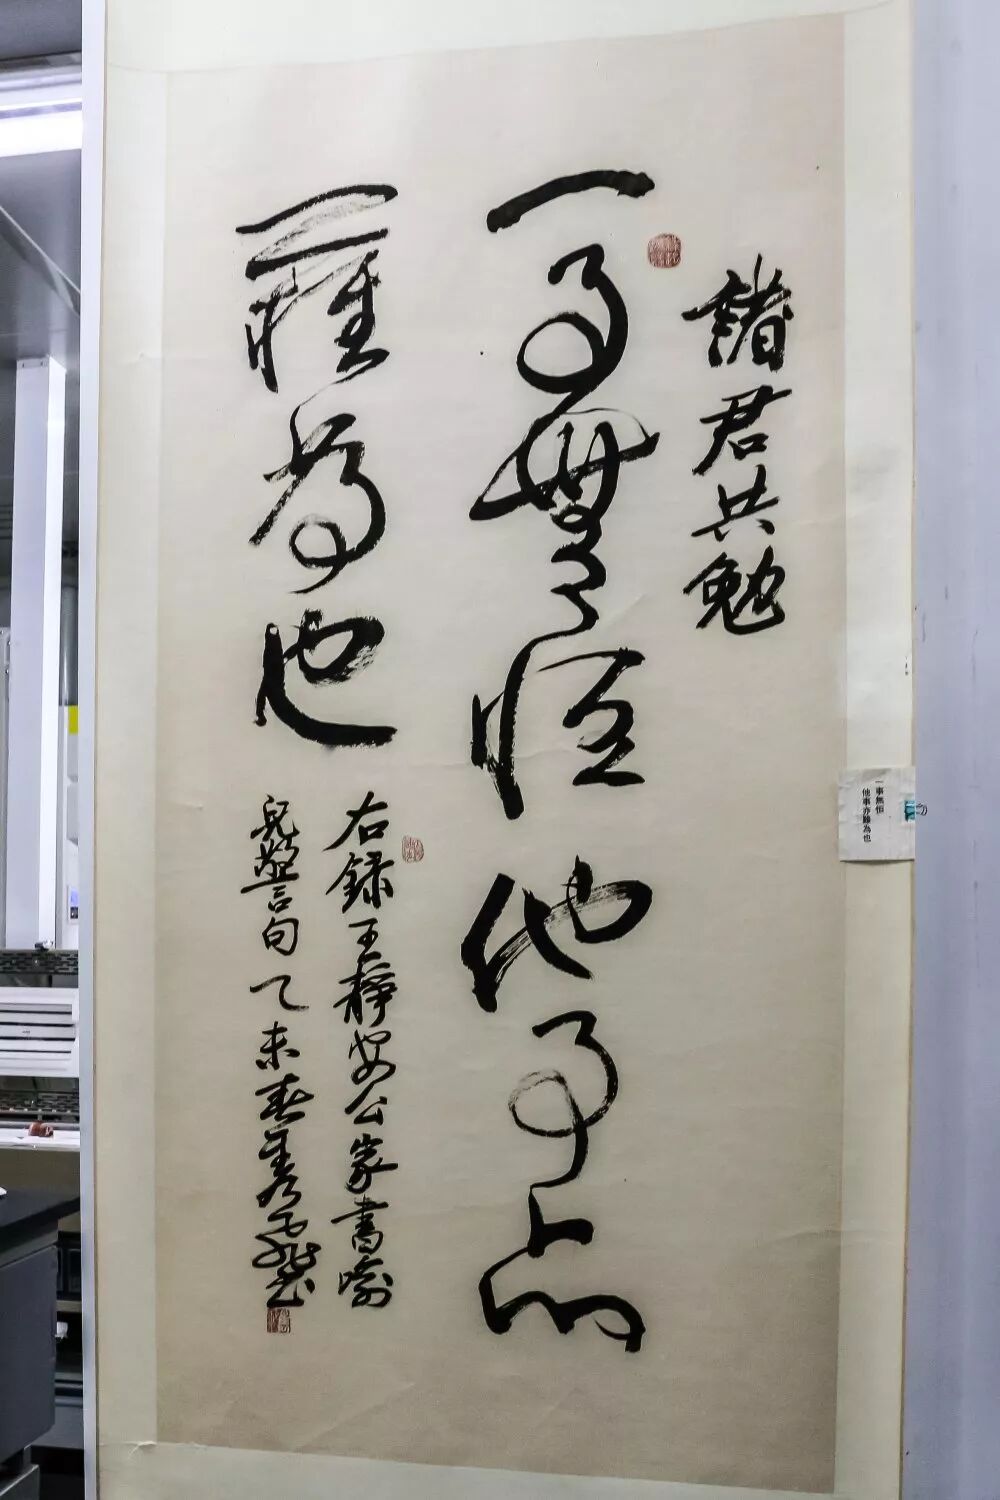 諸君共勉
一事無恒他事亦
難為也
右録王靜安公家書喻
兒警句乙未春
一事無恒
他事亦難為也